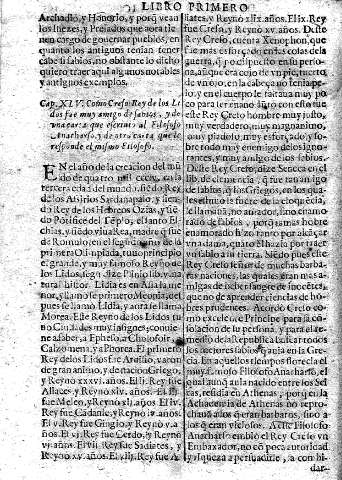 LIBRO PRIMERO
Archadio, y Honorio, y porq̃ vean
los Iuezes, y Prelados que aora tie-
nen cargo de gouernar pueblos, en
quanto los antiguos tenian tener
cabe si sabios, no obstante lo dicho
quiero traer aqui algunos notables
y antiguos exemplos.
Cap. XLV. Como Creso Rey de los Li
dos fue muy amigo de sabios, y de
vna carta que escriuio al Filosofo
Anatharso, y de otra carta que le
responde el mismo Filosofo.
EN el año de la creacion del mũ
do de quatro mil
tercera edad del mundo, siẽdo Rey
de los Assirios Sardanapalo, y siẽn
do Rey de los Hebreos Ozias, y siẽ
do Põtifice del
chias, y siẽdo viua Rea, madre q̃ fue
de Romulo, en el segundo año de la
primera Olimpiada, tuuo principio
el grande, y muy famoso Reyno de
los Lidos, segũ dize Plinio lib.
natural histor. Lidia es en Asia la me
nor, y llamose primero Meonia, des
pues se llamò Lidia, y aora se llama
Morea. Este Reyno de los Lidos tu
uo Ciudades muy insignes: conuie-
ne a saber, a Epheso, a Cholofon, a
Calzomena, y a Phorea. El primero
Rey de los Lidos fue Ardisio, varon
de gran animo, y de nacion Griego,
y Reynò xxxvi. años. El ij. Rey fue
Aliaces, y Reynò xiv. años. El iij.
fue Meleo, y Reynò xij. años. El iiij.
Rey fue Cādanle, y Reynò iv. años.
El v. Rey fue Gingio, y Reynò v. a-
ños. El vi. Rey fue Cerdo, y Reynò
vi. años. El vij. Rey fue Sadiates, y
Reynò xv. años. El viij. Rey fue A-
liates, y Reynò xlix. años. El ix. Rey
fue Creso, y Reynò xv. años. Deste
Rey Creso, cuenta Xenophon, que
fue mas esforçado en las cosas de la
guerra, q̃ no dispuesto en su perso-
na, aunque era cojo de vn pie, tuerto
de vn ojo, en la cabeça no tenia pe-
lo, y en el cuerpo le faltaua muy po
co para ser enano: junto con esto fue
este Rey Creso hombre muy justo,
muy verdadero, muy magnanimo,
muy piadoso, muy esforçado, y so-
bre todo muy enemigo de ignoran-
tes, y muy amigo de los sabios.
Deste Rey Creso, dize Seneca en el
lib. de clemẽcia, q̃ fue tan amigo
de sabios, q̃ los Griegos, en los qua-
les sin duda la fuẽte de la eloquẽcia,
le llamauã, no amador, sino enamo-
rado de sabios, porq̃ jamas hombre
enamorado hizo tanto por alcãçar
vna dama, quanto el hazia por traer
vn sabio a su tierra. Siẽdo pues este
Rey Creso señor de muchas barba-
ras naciones, las quales eran mas a-
migas de beber sangre de inocẽtes,
que no de aprender ciencias de hom-
bres prudentes. Acordò Creso co-
mo excelente Principe para la con-
solacion de su persona, y para el re-
medio de la Republica buscar todos
los mejores sabios q̃ auia en la Gre-
cia. En aquellos tiempos florecia el
muy famoso Filosofo Anatharso, el
qual aunq̃ auia nacido entre los Sci-
tas, residia en Athenas, porq̃ en la
Achademia de Athenas no repro-
chauã a los q̃ eran barbaros, sino a
los q̃ eran viciosos. A este Filosofo
Anatharso embiò el Rey Creso vn
Embaxador, no cõ poca autoridad
y riqueza a persuadirle, a con bi-
dar-